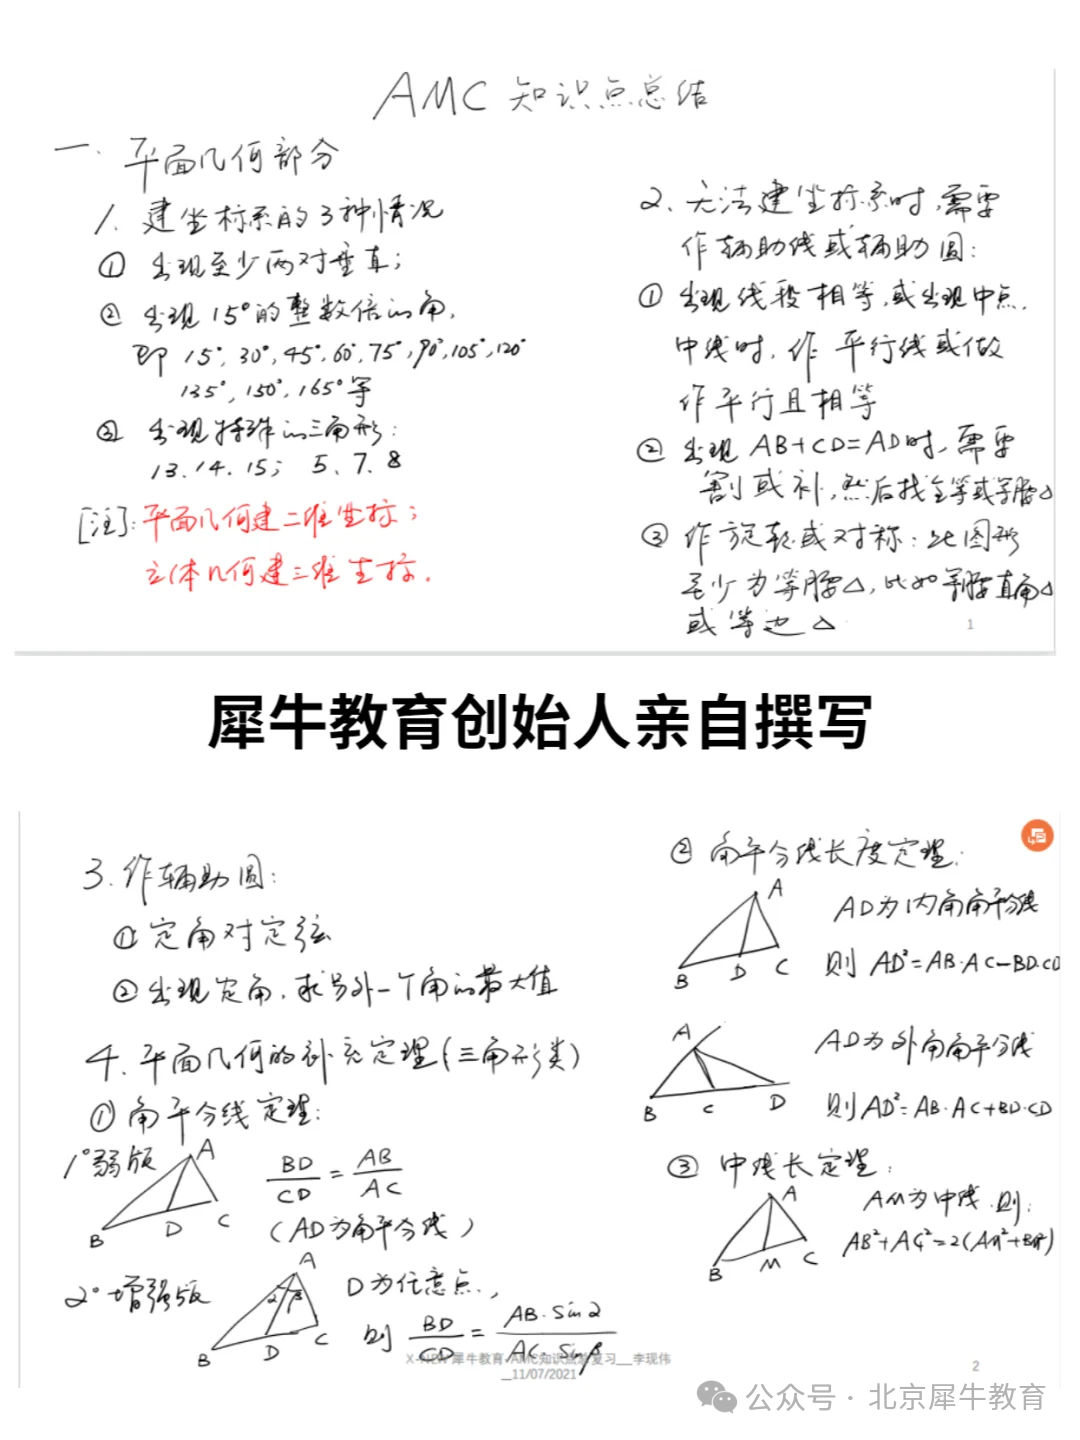 AMC 知识点总结
一. 平面几何部分
1. 建坐标系的3种情况
① 出现至少两对垂直;
② 出现15°的整数倍的角,
即 15°, 30°, 45°, 60°, 75°, 90°, 105°, 120°
135°, 150°, 165°等
③ 出现特殊的三角形:
13. 14. 15; 5. 7. 8
[注]: 平面几何建二维坐标;
立体几何建三维坐标.
2. 无法建坐标系时, 需要
作辅助线或辅助圆:
① 出现线段相等, 或出现中点.
中线时, 作平行线或做
作平行且相等
② 出现 AB+CD=AD时, 需要
割或补, 然后找全等或等腰△
③ 作旋转或对称: 此图形
至少为等腰△, 比如等腰直角△
或等边△
1
犀牛教育创始人亲自撰写
3. 作辅助圆:
① 定角对定弦
② 出现定角, 求另外一个角的最大值
4. 平面几何的补充定理(三角形类)
① 角平分线定理:
1° 弱版
A
B D C
BD/CD = AB/AC
(AD为角平分线)
2° 增强版
A
α β
B D C
D为任意点,
则 BD/CD = AB·Sinα/AC·Sinβ
② 角平分线长度定理:
A
B D C
AD为内角角平分线
则 AD²=AB·AC-BD·CD
A
B C D
AD为外角角平分线
则AD²=AB·AC+BD·CD
③ 中线长定理:
A
B M C
AM为中线.则:
AB²+AC²=2(AM²+BM²)
犀牛教育 AMC知识点总复习__李现伟
__11/07/2021
2
公众号 · 北京犀牛教育